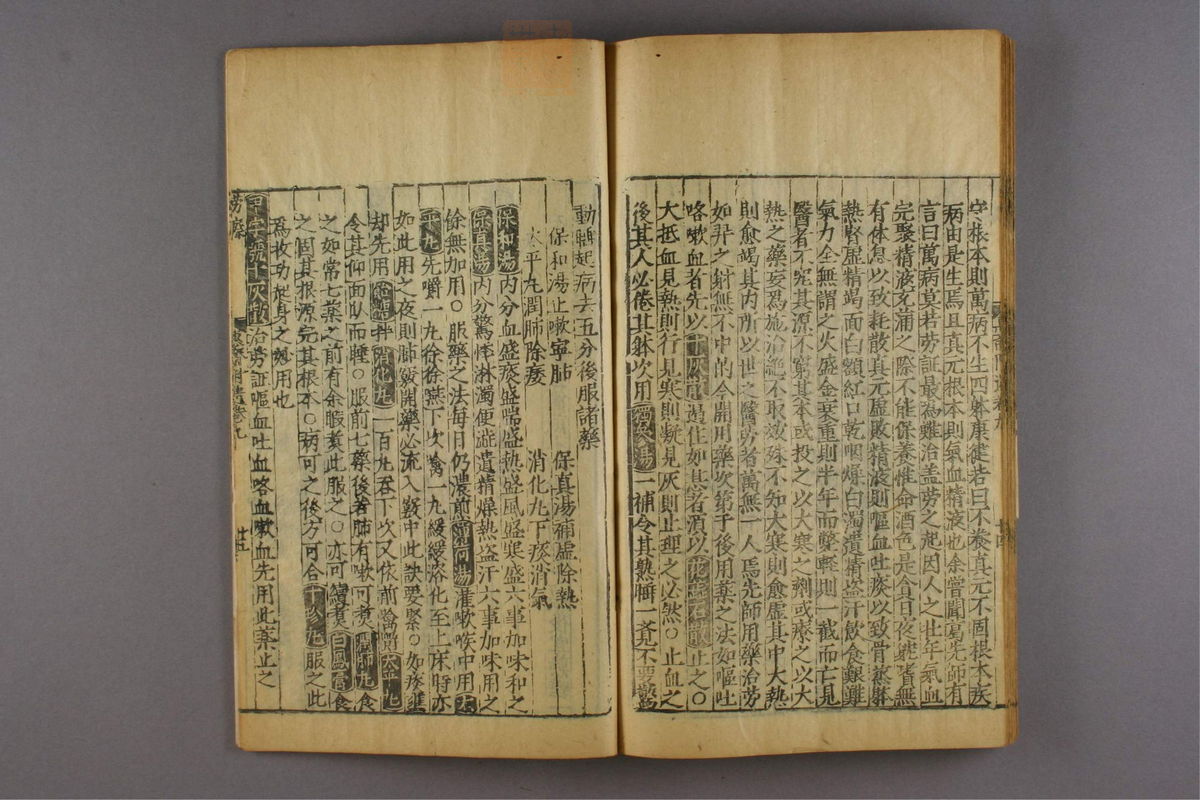 守根本則萬病不生四躰康健若曰不養真元不固根本疾
病由是生焉且真元根本則氣血精液也余嘗聞葛先師有
言曰萬病莫若勞証最為難治盖勞之起因人之壮年氣血
完聚精液充滿之際不能保養惟命酒色是貪日夜躭嗜無
有休息以致耗散真元虛敗精液則嘔血吐痰以致骨蒸躰
熱腎虛精竭面白顴紅口乾咽燥白濁遺精盗汗飲食艱難
氣力全無謂之火盛金衰重則半年而斃輕則一截而亡見
醫者不究其源不窮其本或投之以大寒之劑或療之以大
熱之藥妄為施治絕不取效殊不知大寒則愈虛其中大熱
則愈竭其内所以世之醫勞者萬無一人焉先師用藥治勞
如羿之射無不中的今開用藥次第于後用藥之法如嘔吐
咯嗽血者先以十灰散遏住如甚者須以花蕊石散止之〇
大抵血見熱則行見寒則凝見灰則止理之必然〇止血之
後其人必倦其躰次用獨参湯一補令其熟㾞一覺不要驚
動醒起病去五分後服諸藥
保和湯止嗽寧肺 保真湯補虛除熱
太平丸潤肺除痿 消化丸下痰消氣
保和湯内分血盛痰盛喘盛熱盛風盛寒盛六事加味和之
保真湯内分驚悸淋濁便澁遺精燥熱盗汗六事加味用之
餘無加用〇服藥之法每日仍濃煎薄荷湯灌嗽喉中用太
平丸先嚼一丸徐徐嚥下次噙一丸緩緩溶化至上床時亦
如此用之夜則肺竅開藥必流入竅中此訣要緊〇如痰壅
却先用飴糖拌消化丸一百丸吞下次又依前噙嚼太平丸
令其仰面卧而睡〇服前七藥後若肺有嗽可煑潤肺丸食
之如常七藥之前有余暇煑此服之〇亦可續煑白鳳膏食
之固其根源完其根本〇病可之後方可合十珍丸服之此
爲收功起身之妙用也
甲字號十灰散治勞証嘔血吐血咯血嗽血先用此薬止之
勞瘵